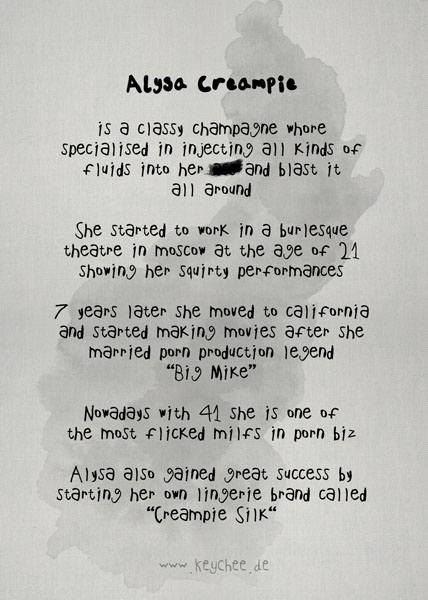 Alysa Creampie
is a classy champagne whore
specialised in injecting all kinds of
fluids into her and blast it
all around
She started to work in a burlesque
theatre in moscow at the age of 21
showing her squirty performances
7 years later she moved to california
and started making movies after she
married porn production legend
"Big Mike"
Nowadays with 41 she is one of
the most flicked milfs in porn biz
Alysa also gained great success by
starting her own lingerie brand called
"Creampie Silk"
www.keychee.de